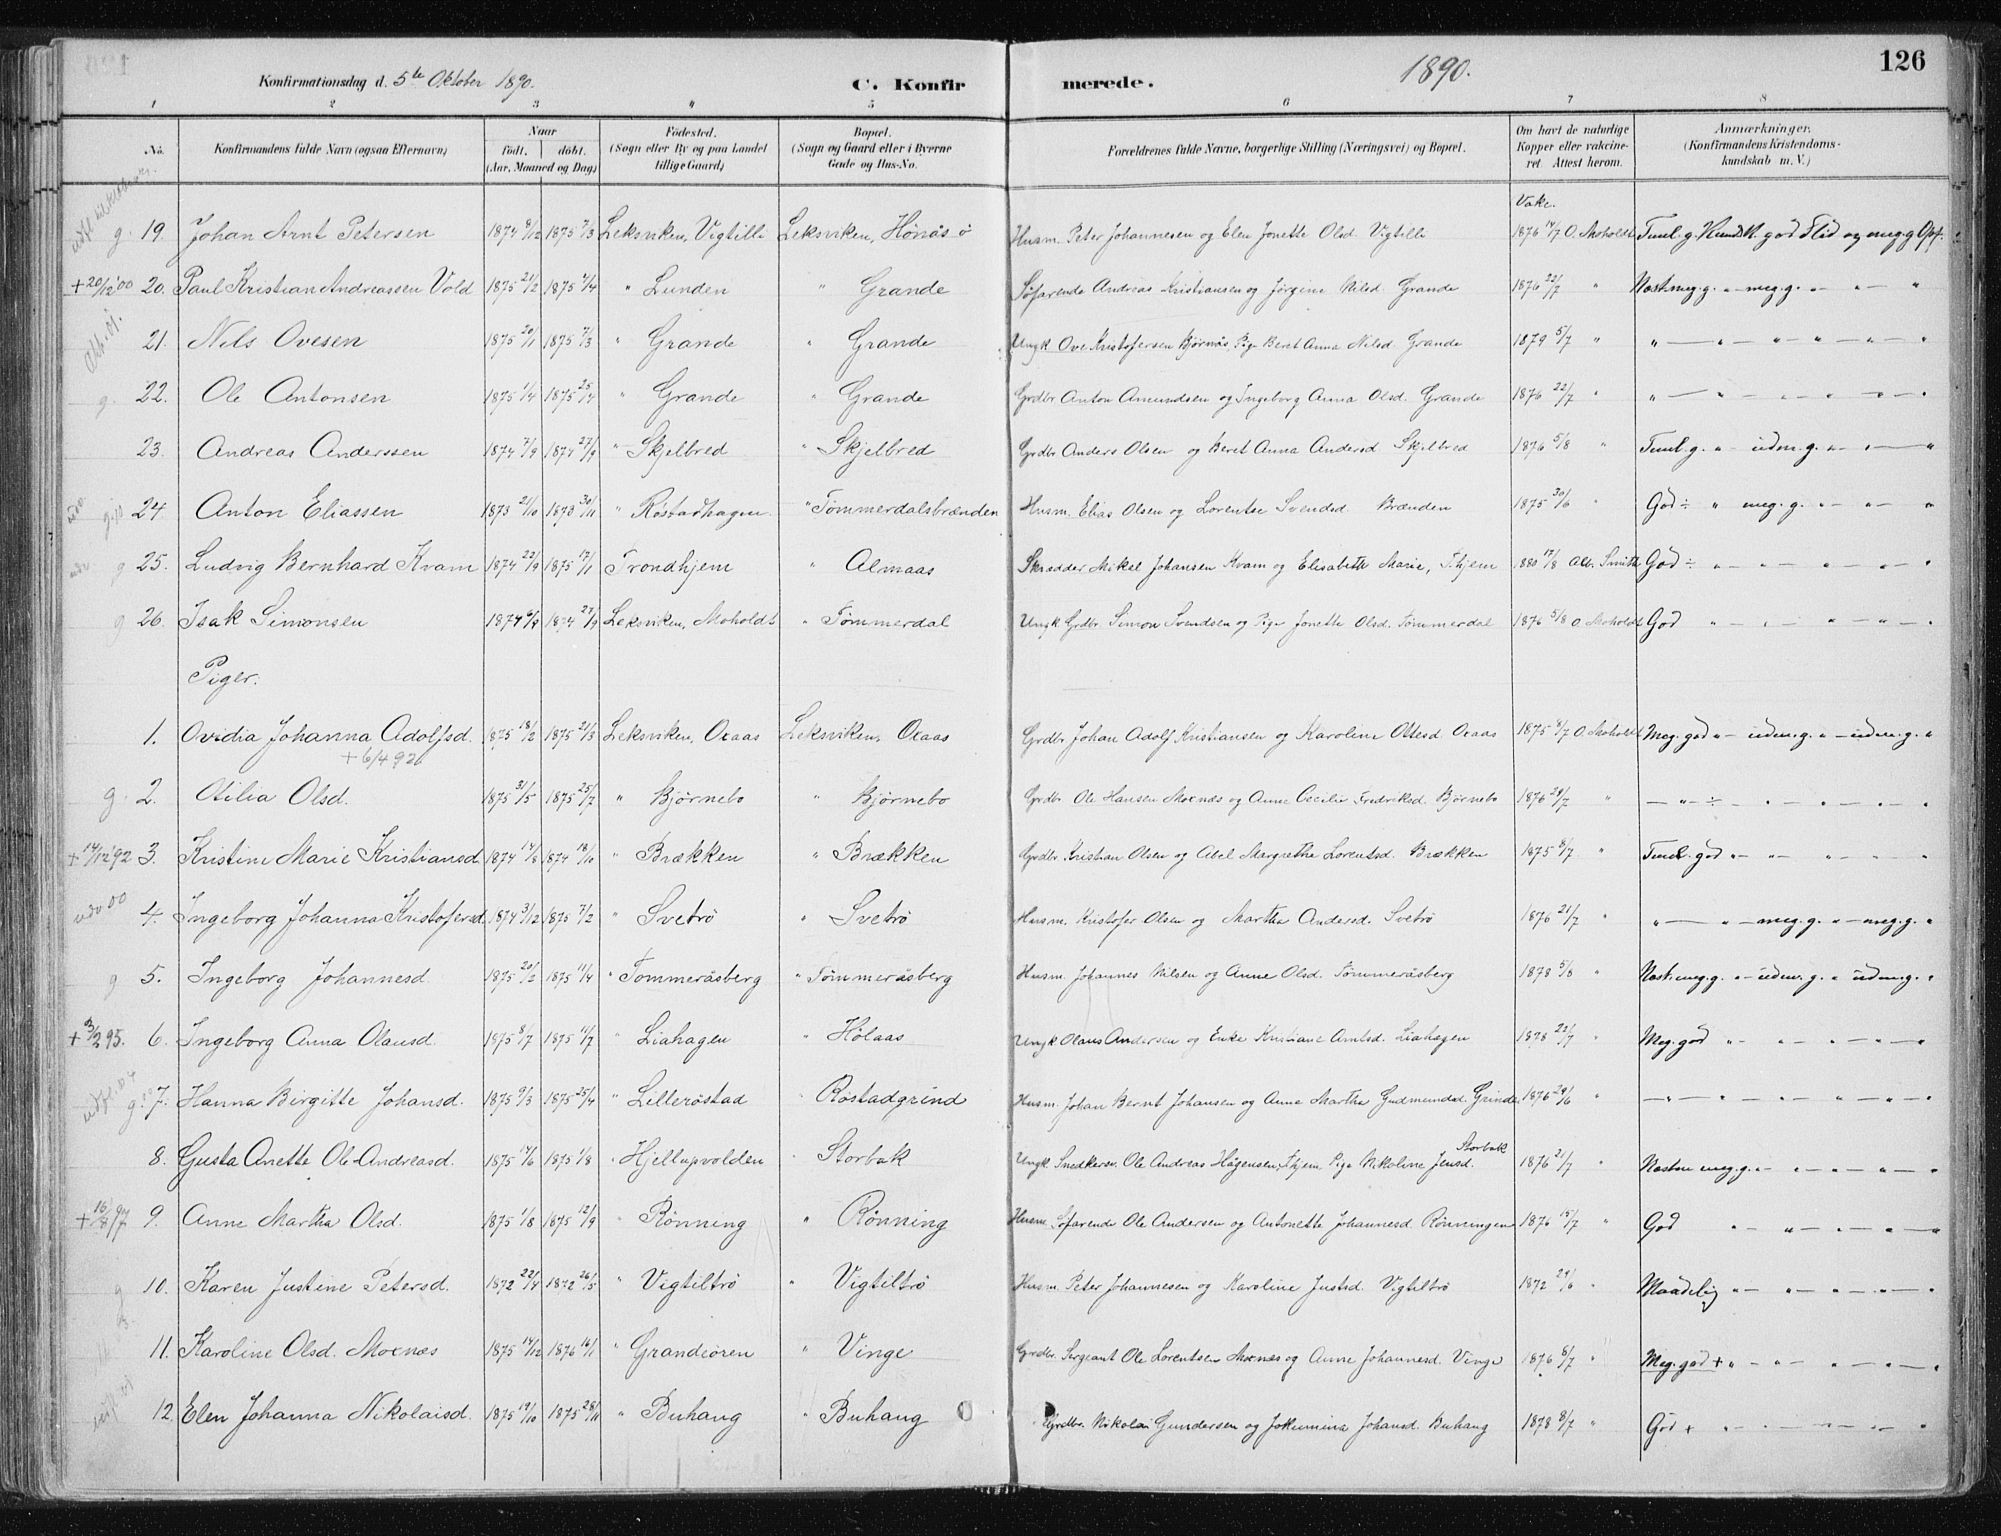 126
Konfirmationsdag d. 5te Oktober 1890. C. Konfirmerede. 1890.
1 2 3 " 5 6 7 8
No. Konfirmandens fulde Navn (ogsaa Efternavn) Naar født. døbt. (Aar, Maaned og Dag) Fødested. (Sogn eller By og paa Landet tillige Gaard) Bopæl. (Sogn og Gaard eller i Byerne Gade og Hus-No. Forældrenes fulde Navne, borgerlige Stilling (Næringsvei) og Bopæl. Om havt de naturlige Kopper eller vakcineret. Attest herom. Anmærkninger. (Konfirmandens Kristendomskundskab m. V.)
Vakc.
g. 19. Johan Arnt Petersen 1874 9/12 1875 7/3 Leksviken, Vigtilli Leksviken, Hønås ö Husm. Peter Johannesen og Elen Jonette Olsd. Vigtilli 1876 14/7 O. Moholdt Teml. g. Kundsk. god Flid og meg. g. Opf.
+20/12 00 20. Paul Kristian Andreassen Vold 1875 21/2 1875 4/4 " Lunden " Grande Søfarende Andreas Kristiansen og Jørgine Nilsd. Grande 1876 22/7 " Næst. meg. g. " meg. g. " " "
21. Nils Ovesen 1875 20/1 1875 7/3 " Grande " Grande Ungk. Ove Kristofersen Bjørnås, Pige Beret Anna Nilsd. Grande 1879 5/7 " " " " " " "
g. 22. Ole Antonsen 1875 1/4 1875 25/4 " Grande " Grande Grdbr Anton Amundsen og Ingeborg Anna Olsd. Grande 1876 22/7 " " " " " " "
23. Andreas Anderssen 1874 7/9 1874 27/9 " Skjelbred " Skjelbred Grdbr Anders Olsen og Beret Anna Andersd Skjelbred 1876 5/8 " Teml. g. " udm. g. " " "
24 Anton Eliassen 1873 21/10 1873 30/11 " Røstadhagen " Tømmerdalsbrænden Husm. Elias Olsen og Lorentse Svendsd. Brænden 1875 30/6 " God ÷ " meg. g. " " "
g 25. Ludvig Bernhard Kvam 1874 22/9 1875 17/1 Trondhjem " Almaas Skrædder Mikal Johansen Kvam og Elisabeth Marie, T.hjem 1880 17/8 Smith God ÷ " " " "
g 26. Isak Simonsen 1874 6/9 1874 27/9 Leksviken, Moholdt " Tømmerdal Ungk. Grdbr. Simon Svendsen og Pige Jonette Olsd. Tømmerdal 1876 5/8 O. Moholdt God " " " " "
Piger.
1. Ovidia Johanna Adolfsd. 1875 18/2 1875 21/3 Leksviken, Oxaas Leksviken, Oxaas Grdbr. Johan Adolf Kristiansen og Karoline Ottesd Oxaas 1875 8/7 O. Moholdt Meg. god " udm. g. " udm. g. "
+ 6/4 92
g. 2. Otilia Olsd. 1875 31/5 1875 25/7 " Bjørnebo " Bjørnebo Grdbr. Ole Hansen Moxnæs og Anne Cecilie Fredriksd. Bjørnebo 1876 29/7 " " ÷ " " " "
+ 14/12 92 3. Kristine Marie Kristiansd. 1874 14/8 1874 18/10 " Brækken " Brækken Grdbr. Kristian Olsen og Abel Margretha Lorentsd. Brækken 1875 8/7 " Teml. god " " " " "
udv 00 4. Ingeborg Johanna Kristofersd. 1874 3/12 1875 7/2 " Svetrø " Svetrø Husm. Kristofer Olsen og Martha Andersd. Svetrø 1876 21/7 " " " meg. g. " meg. g. "
g 5. Ingeborg Johannesd. 1875 20/2 1875 11/4 " Tømmeråsberg " Tømmeråsberg Husm. Johannes Nilsen og Anne Olsd. Tømmeråsberg 1878 5/8 " Næst. meg. g. " udm. g. " udm. g. "
+ 3/2 95. 6. Ingeborg Anna Olausd. 1875 8/7 1875 11/7 " Liahagen " Hølaas Ungk Olaus Andersen og Enke Kristiane Arntsd. Liahagen 1878 22/7 " Meg. god " " " " "
g. 7. Hanna Birgitte Johansd. 1875 9/3 1875 25/4 " Lillerøstad " Røstadgrind Husm. Johan Bernt Johansen og Anne Martha Gudmundsd. Grinde 1876 29/6 " " " " " " "
8. Gusta Anette Ole-Andreasd. 1875 14/6 1875 1/8 " Hjellupvolden " Storbak Ungk. Snedkersv. Ole Andreas Hågensen, Thjem Pige Nikoline Jensd. Storbak 1876 21/7 " Næsten meg. g. " " " " "
+ 16/8 97 9. Anne Martha Olsd. 1875 1/8 1875 12/9 " Rønning " Rønning Husm. Søfarende Ole Andersen og Antonette Johannesd. Rønningen 1876 15/7 " God " " " " "
g 10. Karen Justine Petersd. 1872 22/4 1872 26/5 " Vigtiltrø " Vigtiltrø Husm. Peter Johannesen og Karoline Justsd. Vigtiltrø 1872 24/6 " Maadelig " " " " "
11. Karoline Olsd. Moxnæs 1875 14/12 1876 16/1 " Grandeøren " Vinge Grdbr. Sergeant Ole Lorentsen Moxnæs og Anne Johannesd. Vinge 1876 8/7 " Meg. god + " " " "
12. Elen Johanna Nikolaisd. 1875 19/10 1875 28/11 " Buhaug " Buhaug Grdbr. Nikolai Gundersen og Jokumina Johansd. Buhaug 1878 8/7 " God + " " " "